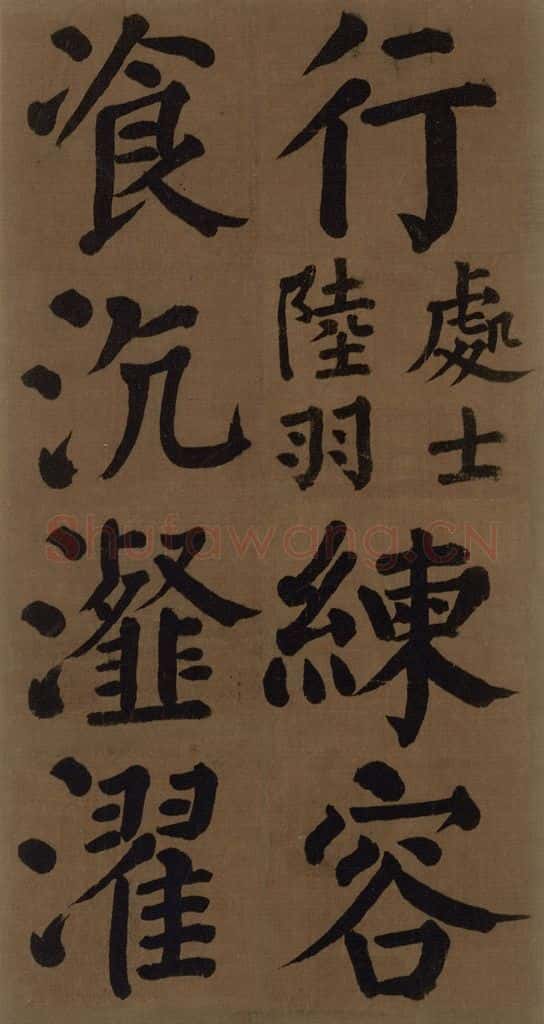 行
處士
陸羽
練容
飡沆瀣濯
Shufawang.CN